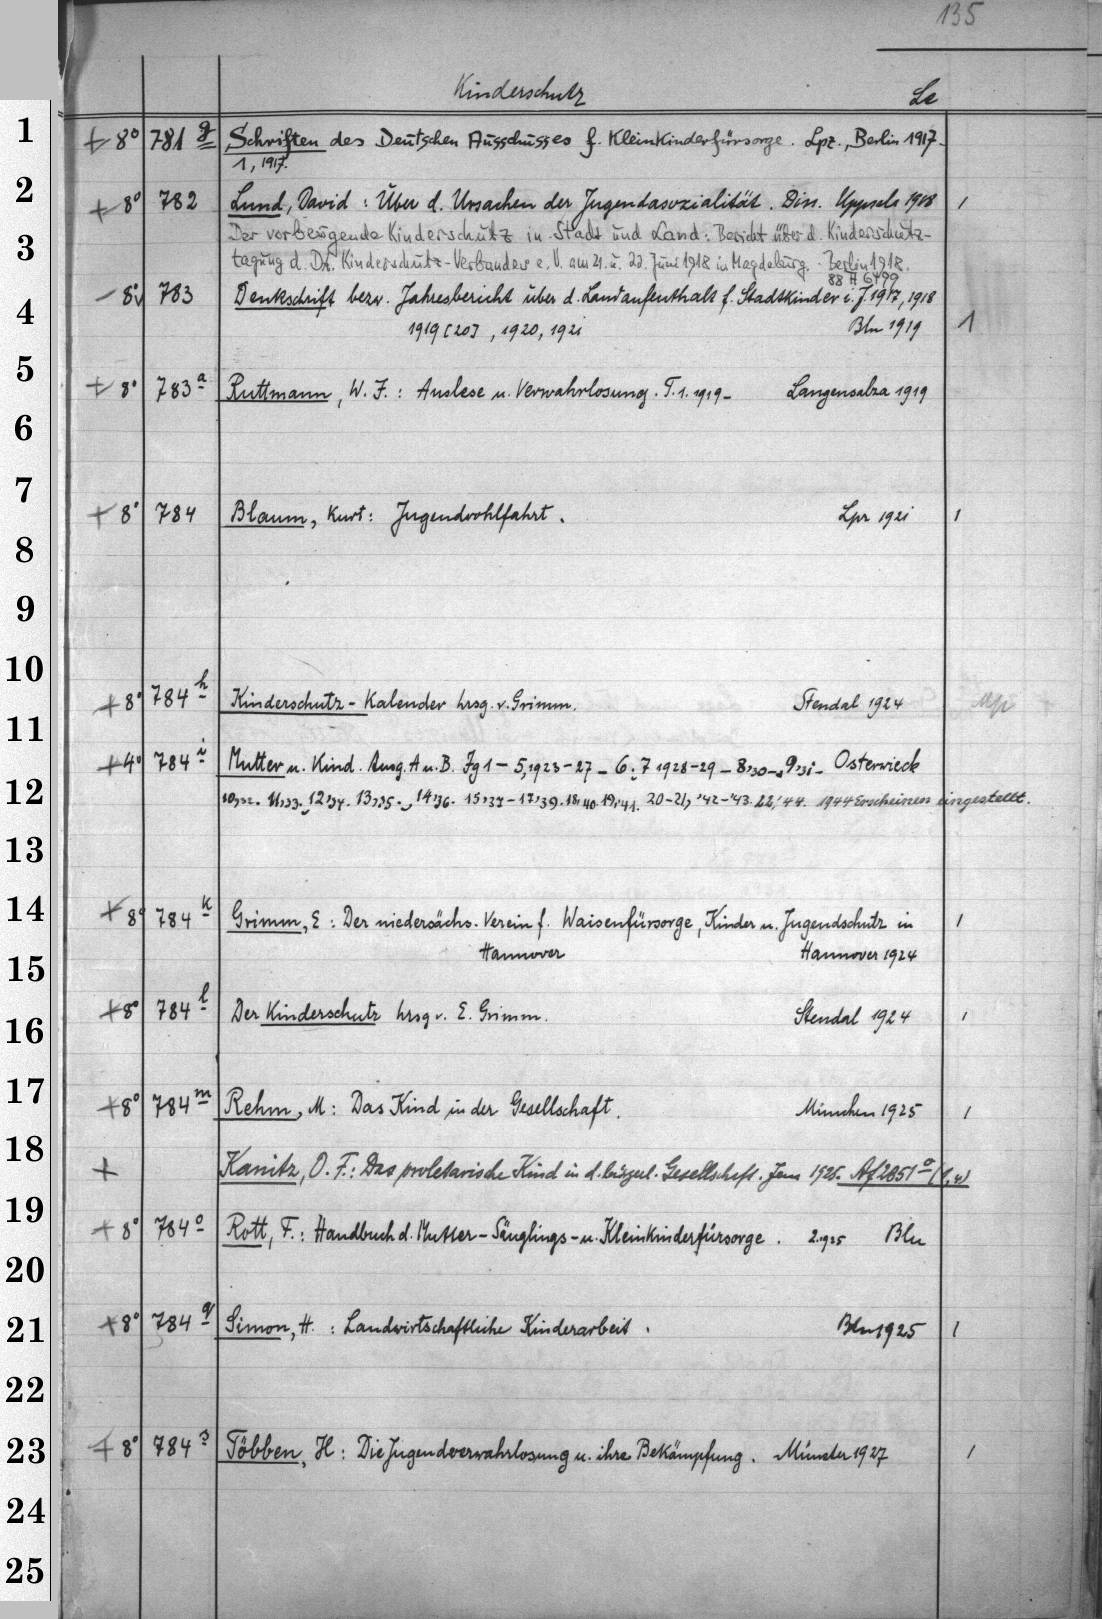 135
Kinderschutz Le
1 + 8° 781 g Schriften des Deutschen Ausschusses f. Kleinkinderfürsorge. Lpz., Berlin 1917-
1, 1917.
2 + 8° 782 Lund, David: Über d. Ursachen der Jugendasozialität. Diss. Uppsala 1918 1
3 Der vorbeugende Kinderschutz in Stadt und Land: Bericht über d. Kinderschutz-
tagung d. Dt. Kinderschutz-Verbandes e. V. am 21. u. 22. Juni 1918 in Magdeburg. Berlin 1918.
88 A 6499
4 - 8° 783 Denkschrift bezw. Jahresbericht über d. Landaufenthalt f. Stadtkinder i. J. 1917, 1918
1919 [20], 1920, 1921 Bln 1919 1
5 + 8° 783 a Ruttmann, W. J.: Auslese u. Verwahrlosung. T. 1. 1919- Langensalza 1919
6
7 + 8° 784 Blaum, Kurt: Jugendwohlfahrt. Lpz 1921 1
8
9
10 + 8° 784 h Kinderschutz-Kalender hrsg. v. Grimm. Stendal 1924
11 + 4° 784 i Mutter u. Kind. Ausg. A u. B. Jg 1-5, 1923-27- 6. 7 1928-29- 8,30- 9,31- Osterwieck
12 10,32. 11,33. 12,34. 13,35. 14,36. 15,37-17,39. 18,40. 19,41. 20-21, '42-'43. 22,'44. 1944 Erscheinen eingestellt.
13
14 + 8° 784 k Grimm, E: Der niedersächs. Verein f. Waisenfürsorge, Kinder u. Jugendschutz in 1
Hannover Hannover 1924
15
16 + 8° 784 l Der Kinderschutz hrsg v. E. Grimm. Stendal 1924 1
17 + 8° 784 m Rehm, M: Das Kind in der Gesellschaft. München 1925 1
18 + Kanitz, O. F.: Das proletarische Kind in d. bürgerl. Gesellschaft. Jena 1925. Af 2851 a
19 + 8° 784 o Rott, F.: Handbuch d. Mutter-Säuglings-u. Kleinkinderfürsorge. 2. 1925 Bln
20
21 + 8° 784 q Simon, H.: Landwirtschaftliche Kinderarbeit. Bln 1925 1
22
23 + 8° 784 s Többen, H: Die Jugendverwahrlosung u. ihre Bekämpfung. Münster 1927 1
24
25